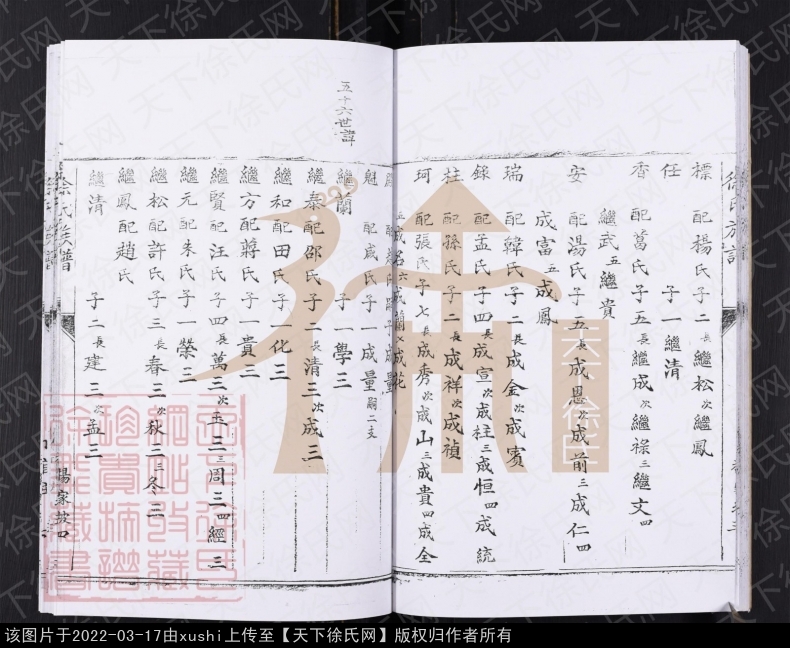 徐氏族譜
標 配楊氏子二長繼松次繼鳳
任 子一繼清
香 配葛氏子五長繼成次繼祿三繼文四
繼武五繼貴
安 配湯氏子五長成恩次成前三成仁四
成富五成鳳
瑞 配韓氏子二長成金次成賓
錄 配孟氏子四長成宣次成柱三成恒四成統
柱 配孫氏子二長成祥次成禎
珂 配張氏子七長成秀次成山三成貴四成全
五成名六成蘭七成花
魁 配咸氏子一成量嗣二支
五十六世諱
繼蘭 子一學三
繼泰配邵氏子二長清三次成三
繼和配田氏子一化三
繼方配蔣氏子一貴三
繼賢配汪氏子四長萬三次五二三周三四經三
繼元配朱氏子一榮三
繼松配許氏子三長春三次秋二三冬三
繼鳳配趙氏
繼清 子二長建三次孟三
徐氏族譜
楊家坡四
天下徐氏
天下徐氏网
该图片于2022-03-17由xushi上传至【天下徐氏网】版权归作者所有